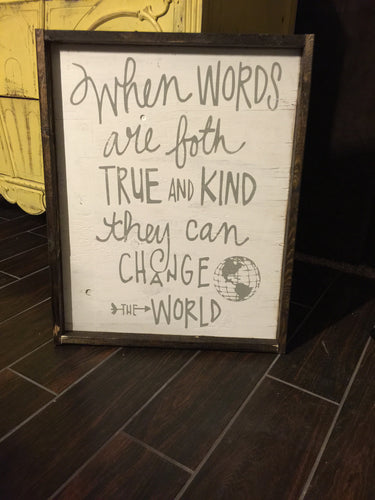 When WORDS
are foth
TRUE AND KIND
they can
CHANGE
THE WORLD